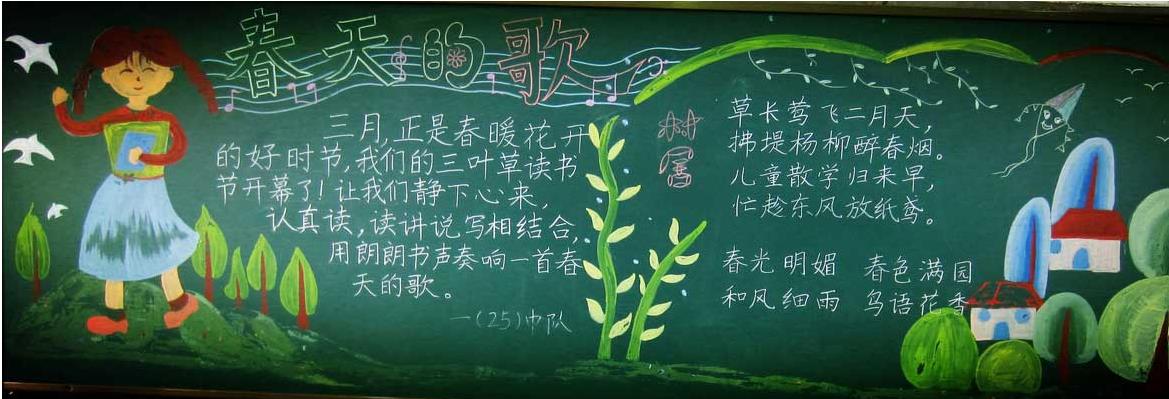 春天的歌
三月,正是春暖花开
的好时节,我们的三叶草读书
节开幕了!让我们静下心来,
认真读,读讲说写相结合,
用朗朗书声奏响一首春
天的歌。
一(25)中队
村居
草长莺飞二月天,
拂堤杨柳醉春烟。
儿童散学归来早,
忙趁东风放纸鸢。
春光明媚 春色满园
和风细雨 鸟语花香